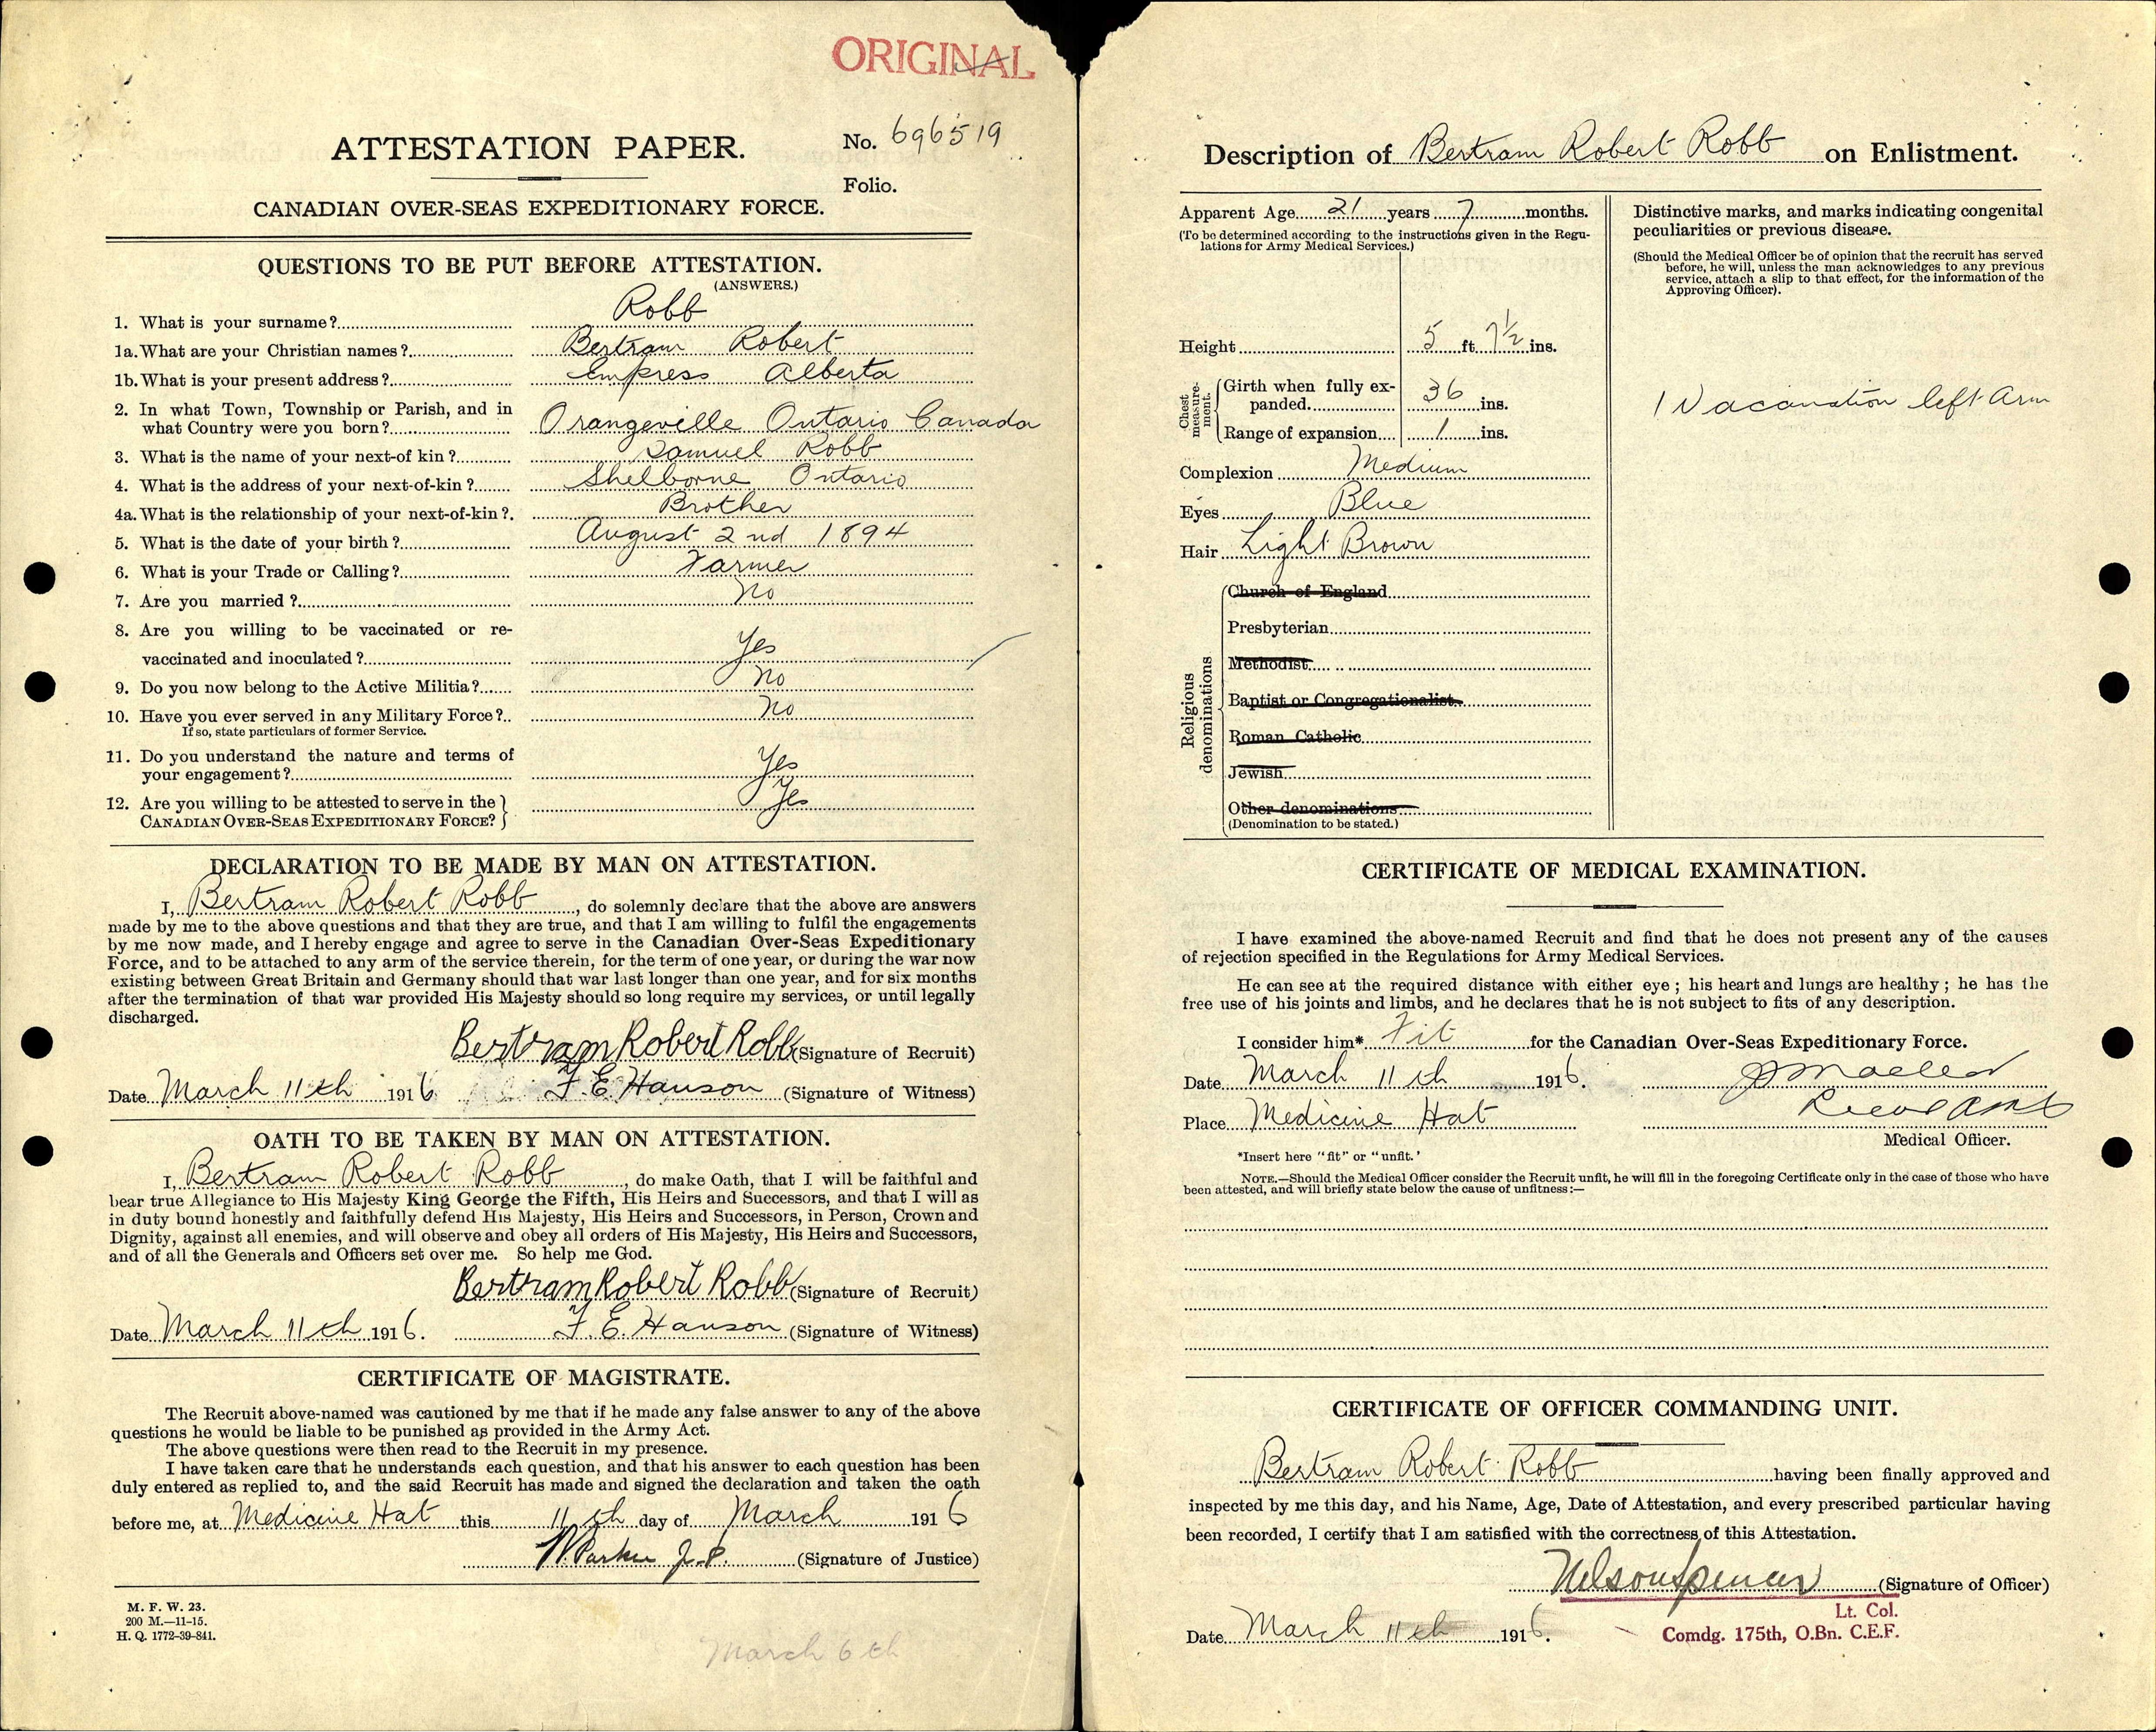 ORIGINAL
ATTESTATION PAPER.
No. 696519
Folio.
CANADIAN OVER-SEAS EXPEDITIONARY FORCE.
QUESTIONS TO BE PUT BEFORE ATTESTATION.
(ANSWERS.)
1. What is your surname? Robb
1a. What are your Christian names? Bertram Robert
1b. What is your present address? Empress Alberta
2. In what Town, Township or Parish, and in
what Country were you born? Orangeville Ontario Canada
3. What is the name of your next-of kin? Samuel Robb
4. What is the address of your next-of-kin? Shelborne Ontario
4a. What is the relationship of your next-of-kin? Brother
5. What is the date of your birth? August 2nd 1894
6. What is your Trade or Calling? Farmer
7. Are you married? No
8. Are you willing to be vaccinated or re-
vaccinated and inoculated? Yes
9. Do you now belong to the Active Militia? No
10. Have you ever served in any Military Force? No
If so, state particulars of former Service.
11. Do you understand the nature and terms of
your engagement? Yes
12. Are you willing to be attested to serve in the
CANADIAN OVER-SEAS EXPEDITIONARY FORCE? Yes
DECLARATION TO BE MADE BY MAN ON ATTESTATION.
I, Bertram Robert Robb, do solemnly declare that the above are answers
made by me to the above questions and that they are true, and that I am willing to fulfil the engagements
by me now made, and I hereby engage and agree to serve in the Canadian Over-Seas Expeditionary
Force, and to be attached to any arm of the service therein, for the term of one year, or during the war now
existing between Great Britain and Germany should that war last longer than one year, and for six months
after the termination of that war provided His Majesty should so long require my services, or until legally
discharged.
Bertram Robert Robb (Signature of Recruit)
Date March 11th 1916 F. E. Hanson (Signature of Witness)
OATH TO BE TAKEN BY MAN ON ATTESTATION.
I, Bertram Robert Robb, do make Oath, that I will be faithful and
bear true Allegiance to His Majesty King George the Fifth, His Heirs and Successors, and that I will as
in duty bound honestly and faithfully defend His Majesty, His Heirs and Successors, in Person, Crown and
Dignity, against all enemies, and will observe and obey all orders of His Majesty, His Heirs and Successors,
and of all the Generals and Officers set over me. So help me God.
Bertram Robert Robb (Signature of Recruit)
Date March 11th 1916. F. E. Hanson (Signature of Witness)
CERTIFICATE OF MAGISTRATE.
The Recruit above-named was cautioned by me that if he made any false answer to any of the above
questions he would be liable to be punished as provided in the Army Act.
The above questions were then read to the Recruit in my presence.
I have taken care that he understands each question, and that his answer to each question has been
duly entered as replied to, and the said Recruit has made and signed the declaration and taken the oath
before me, at Medicine Hat this 11th day of March 1916
W. Parker J.P. (Signature of Justice)
M. F. W. 23.
200 M.—11-15.
H. Q. 1772-39-841.
March 6th
Description of Bertram Robert Robb on Enlistment.
Apparent Age 21 years 7 months.
(To be determined according to the instructions given in the Regu-
lations for Army Medical Services.)
Height 5 ft. 7½ ins.
Chest measure-ment.
Girth when fully ex-
panded 36 ins.
Range of expansion 1 ins.
Complexion Medium
Eyes Blue
Hair Light Brown
Religious denominations
Church of England
Presbyterian
Methodist
Baptist or Congregationalist
Roman Catholic
Jewish
Other denominations
(Denomination to be stated.)
Distinctive marks, and marks indicating congenital
peculiarities or previous disease.
(Should the Medical Officer be of opinion that the recruit has served
before, he will, unless the man acknowledges to any previous
service, attach a slip to that effect, for the information of the
Approving Officer).
1 Vacanation left Arm
CERTIFICATE OF MEDICAL EXAMINATION.
I have examined the above-named Recruit and find that he does not present any of the causes
of rejection specified in the Regulations for Army Medical Services.
He can see at the required distance with either eye; his heart and lungs are healthy; he has the
free use of his joints and limbs, and he declares that he is not subject to fits of any description.
I consider him* Fit for the Canadian Over-Seas Expeditionary Force.
Date March 11th 1916.
Place Medicine Hat
Medical Officer.
*Insert here "fit" or "unfit.'
NOTE.—Should the Medical Officer consider the Recruit unfit, he will fill in the foregoing Certificate only in the case of those who have
been attested, and will briefly state below the cause of unfitness:—
CERTIFICATE OF OFFICER COMMANDING UNIT.
Bertram Robert Robb having been finally approved and
inspected by me this day, and his Name, Age, Date of Attestation, and every prescribed particular having
been recorded, I certify that I am satisfied with the correctness of this Attestation.
Nelson Spencer (Signature of Officer)
Lt. Col.
Comdg. 175th, O.Bn. C.E.F.
Date March 11th 1916.